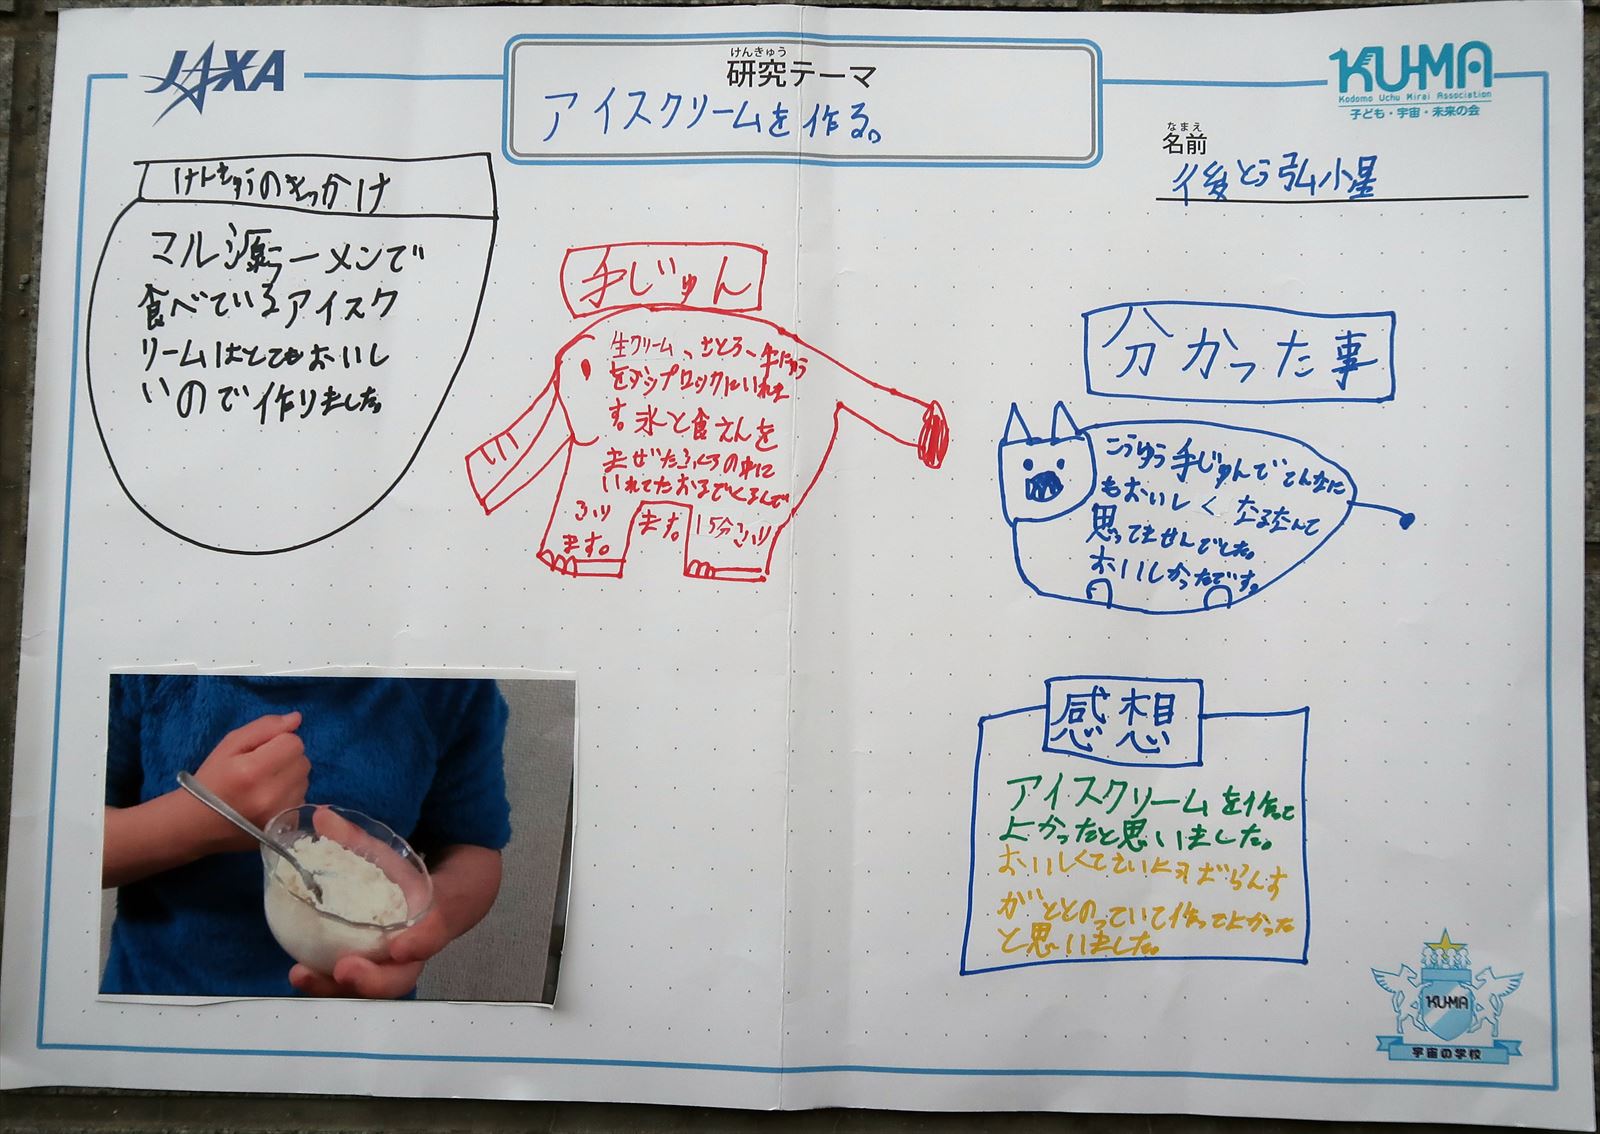 JAXA
けんきゅう
研究テーマ
アイスクリームを作る。
KU-MA
Kodomo Uchu Mirai Association
子ども・宇宙・未来の会
なまえ
名前
後とう弘小星
けんきゅうのきっかけ
マル源ラーメンで
食べているアイスク
リームはとてもおいし
いので作りました。
手じゅん
生クリーム、さとう、牛にゅう
をジップロックにいれま
す。氷と食えんを
まぜたふくろの中に
いれてたおるでくるんで
ふり
ます。
ます。
15分ふり
分かった事
こうゆう手じゅんでこんなに
もおいしくなるなんて
思ってませんでした。
おいしかったです。
感想
アイスクリームを作って
よかったと思いました。
おいしくて
がととのっていて作ってよかった
と思いました。
KU-MA
宇宙の学校